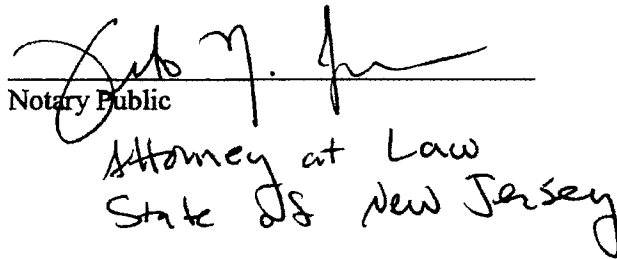 Notary Public
Attorney at Law
State of New Jersey